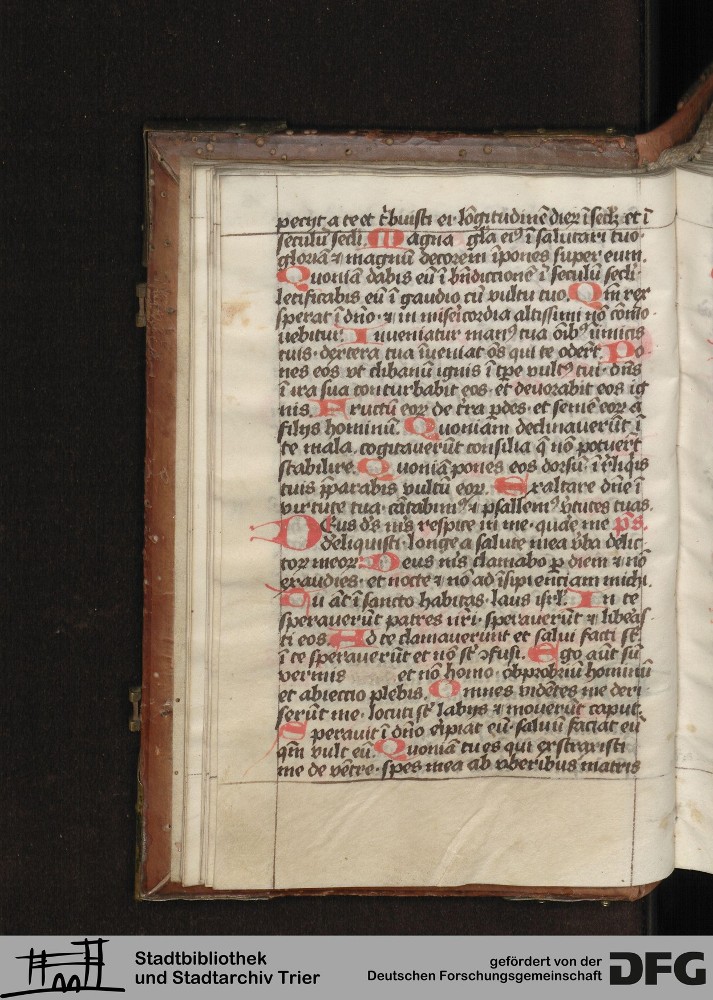 pecijt a te et t̄buisti ei lo̅gitudinē dieꝝ ī sc̄lꝫ et ī
seculū sc̄li. Magna gl̄a ei⁹ ī salutari tuo·
gloriā ⁊ magnū decorem īpones super eum.
Quoniā dabis eū ī bn̄dictionē ī seculū sc̄li·
letificabis eū ī gaudio cū vultu tuo. Qm̄ rex
sperat ī dn̄o· ⁊ in misericordia altissimi nō cōmo
uebitur. Inueniatur man⁹ tua oīb⁹ īimicis
tuis· dextera tua īueniat oēs qui te oder̄t. Po
nes eos vt clibanū ignis ī tp̄e vult⁹ tui· dn̄s
ī ira sua conturbabit eos· et deuorabit eos ig
nis. Fructū eoꝝ de t̄ra p̄des· et semē eoꝝ a
filijs hominū. Quoniam declinauerūt ī
te mala. cogitauerūt consilia q̄ nō potuer̄t
stabilire. Quoniā pones eos dorsū· ī rl̄iqis
tuis p̄parabis vultū eoꝝ. Exaltare dn̄e ī
virtute tua· cātabim⁹ ⁊ psallem⁹ v̄tutes tuas.
DEus ds̄ ms̄ respice in me· quare me p̄s.
dereliquisti· longe a salute mea v̄ba delic
toꝝ meoꝝ. Deus ms̄ clamabo p̄ diem ⁊ nō
exaudies· et nocte ⁊ nō ad īsipienciam michi.
Tu aūt ī sancto habitas· laus isrl̄. In te
sperauerūt patres nr̄i· sperauerūt ⁊ libeas̄
ti eos. Ad te clamauerunt et salui facti st̄·
ī te sperauerūt et nō st̄ ↄfusi. Ego aūt sū
vermis et nō homo· obprobriū hominū
et abiectio plebis. Omnes vidētes me deri
serūt me· locuti st̄ labijs ⁊ mouerūt caput.
Sperauit ī dn̄o eripiat eū· saluū faciat eū
qm̄ vult eū. Quoniā tu es qui extraxisti
me de vētre· spes mea ab vberibus matris
Stadtbibliothek
und Stadtarchiv Trier
gefördert von der
Deutschen Forschungsgemeinschaft DFG